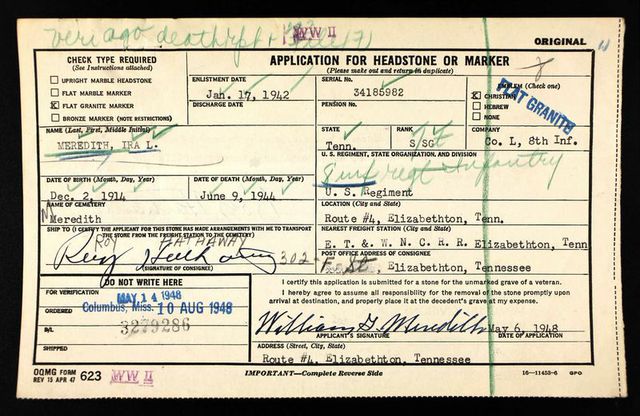 WW II
ORIGINAL
CHECK TYPE REQUIRED
(See Instructions attached)
UPRIGHT MARBLE HEADSTONE
FLAT MARBLE MARKER
FLAT GRANITE MARKER
BRONZE MARKER (NOTE RESTRICTIONS)
ENLISTMENT DATE
Jan. 17, 1942
DISCHARGE DATE
APPLICATION FOR HEADSTONE OR MARKER
(Please make out and return in duplicate)
SERIAL No.
34185982
PENSION No.
EMBLEM (Check one)
CHRISTIAN
HEBREW
NONE
FLAT GRANITE
NAME (Last, First, Middle Initial)
MEREDITH, IRA L.
STATE
Tenn.
RANK
S/SGT
COMPANY
Co. L, 8th Inf.
U. S. REGIMENT, STATE ORGANIZATION, AND DIVISION
Infantry
U. S. Regiment
DATE OF BIRTH (Month, Day, Year)
Dec. 2, 1914
DATE OF DEATH (Month, Day, Year)
June 9, 1944
NAME OF CEMETERY
Meredith
LOCATION (City and State)
Route #4, Elizabethton, Tenn.
SHIP TO (I CERTIFY THE APPLICANT FOR THIS STONE HAS MADE ARRANGEMENTS WITH ME TO TRANSPORT
THE STONE FROM THE FREIGHT STATION TO THE CEMETERY)
ROY HATHAWAY
Roy Hathaway
(SIGNATURE OF CONSIGNEE)
NEAREST FREIGHT STATION (City and State)
E. T. &. W. N. C. R. R. Elizabethton, Tenn
POST OFFICE ADDRESS OF CONSIGNEE
302-F St. Elizabethton, Tennessee
DO NOT WRITE HERE
FOR VERIFICATION
MAY 14 1948
ORDERED
Columbus, Miss. 10 AUG 1948
B/L
3279286
SHIPPED
I certify this application is submitted for a stone for the unmarked grave of a veteran.
I hereby agree to assume all responsibility for the removal of the stone promptly upon
arrival at destination, and properly place it at the decedent's grave at my expense.
William G Meredith May 6, 1948
APPLICANT'S SIGNATURE
ADDRESS (Street, City, State)
Route #4, Elizabethton, Tennessee
OQMG FORM
REV 15 APR 47 623
WW II
IMPORTANT—Complete Reverse Side
16—11453-6 GPO